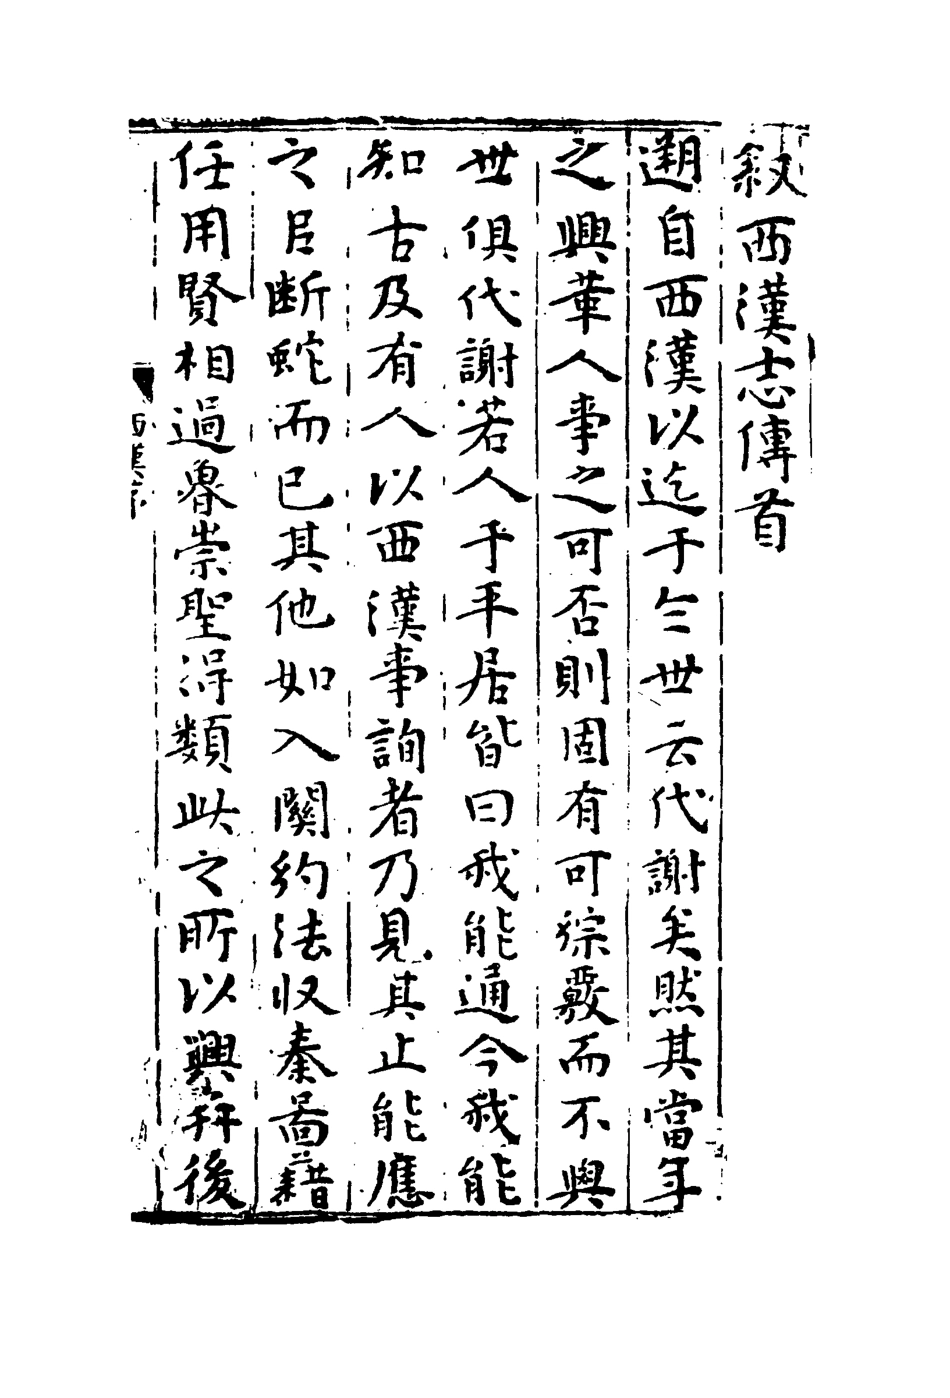 叙西漢志傳首
遡自西漢以迄于亼世云代謝矣然其當年
之興革人事之可否則固有可綜覈而不與
世俱代謝若人乎平居皆曰我能通今我能
知古及有人以西漢事詢者乃見其止能應
之曰断蛇而已其他如入關約法收秦啚籍
任用賢相過魯崇聖淂類此之所以興再後
西漢序